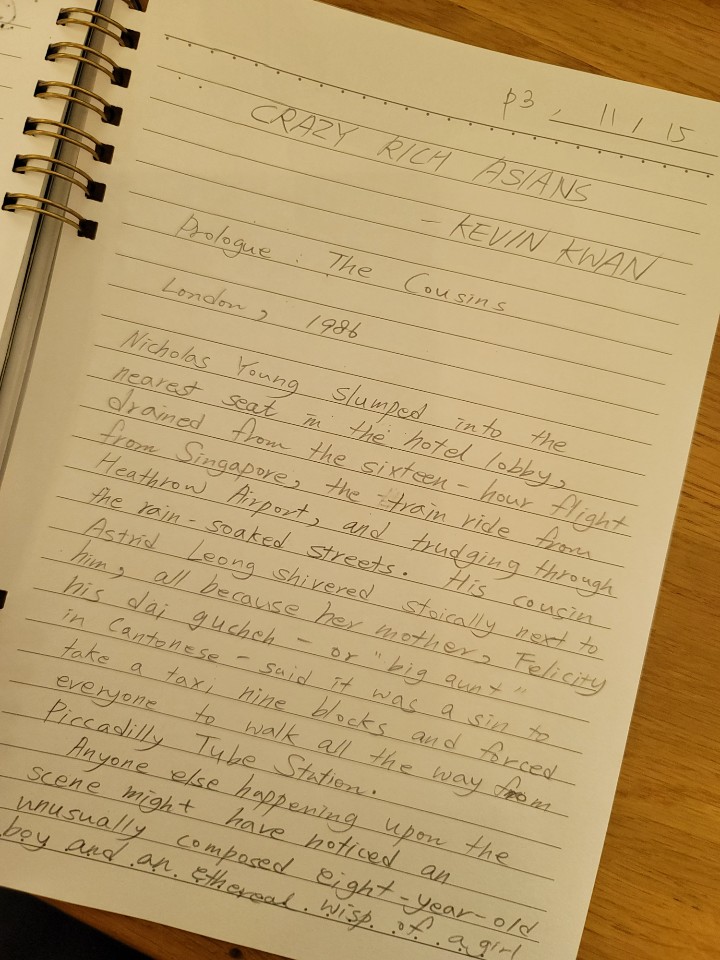 p3, 11/15
CRAZY RICH ASIANS
- KEVIN KWAN
Prologue : The Cousins
London, 1986
Nicholas Young slumped into the
nearest seat in the hotel lobby,
drained from the sixteen-hour flight
from Singapore, the train ride from
Heathrow Airport, and trudging through
the rain-soaked streets. His cousin
Astrid Leong shivered stoically next to
him, all because her mother, Felicity
his dai gucheh - or "big aunt"
in Cantonese - said it was a sin to
take a taxi nine blocks and forced
everyone to walk all the way from
Piccadilly Tube Station.
Anyone else happening upon the
scene might have noticed an
unusually composed eight-year-old
boy and an ethereal wisp of a girl